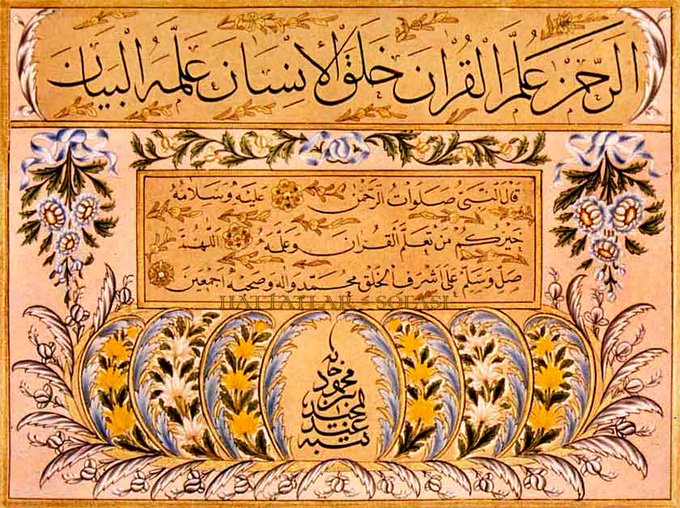 الرَّحمٰنُ عَلَّمَ القُرانَ خَلَقَ الإِنسَانَ عَلَّمَهُ البَيَانَ
قَالَ النَّبِىُّ صَلَوَاتُ الرَّحْمٰنِ عَلَيْهِ وَسَلَامُهُ
خَيْرُكُم مَنْ تَعَلَّمَ القُرانَ وَعَلَّمَهُ اللّهُمَّ
صَلِّ وَسَلِّمْ عَلىٰ اَشْرَفِ الخَلْقِ مُحَمَّدٍ وَالِهِ وَصَحْبِهِ اَجْمَعِينَ
HATTATLAR SOFASI
محمود
عبد
كتبه